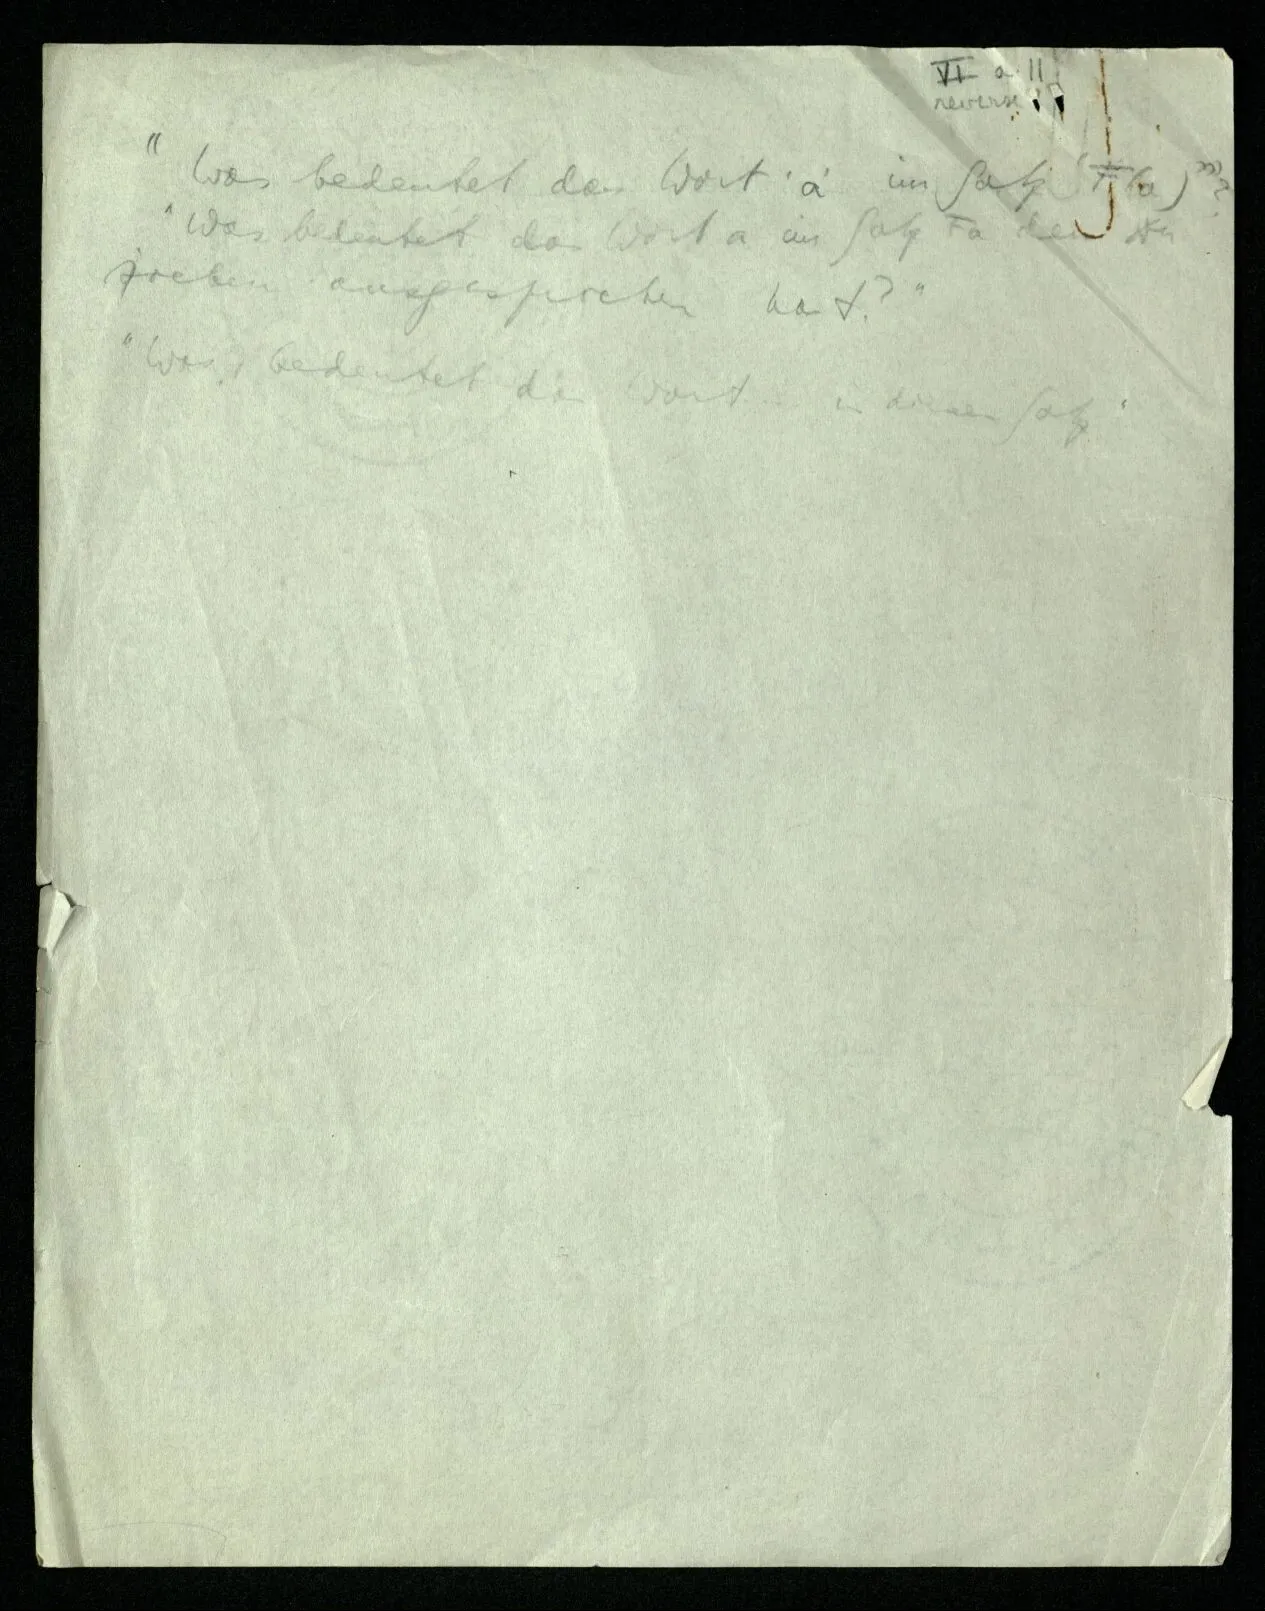 VI a 11
reverse
" Was bedeutet das Wort 'a' im Satz 'F(a)'"?
"Was bedeutet das Wort a im Satz Fa den Du
soeben ausgesprochen hast?"
"Was bedeutet das Wort in diesem Satz"